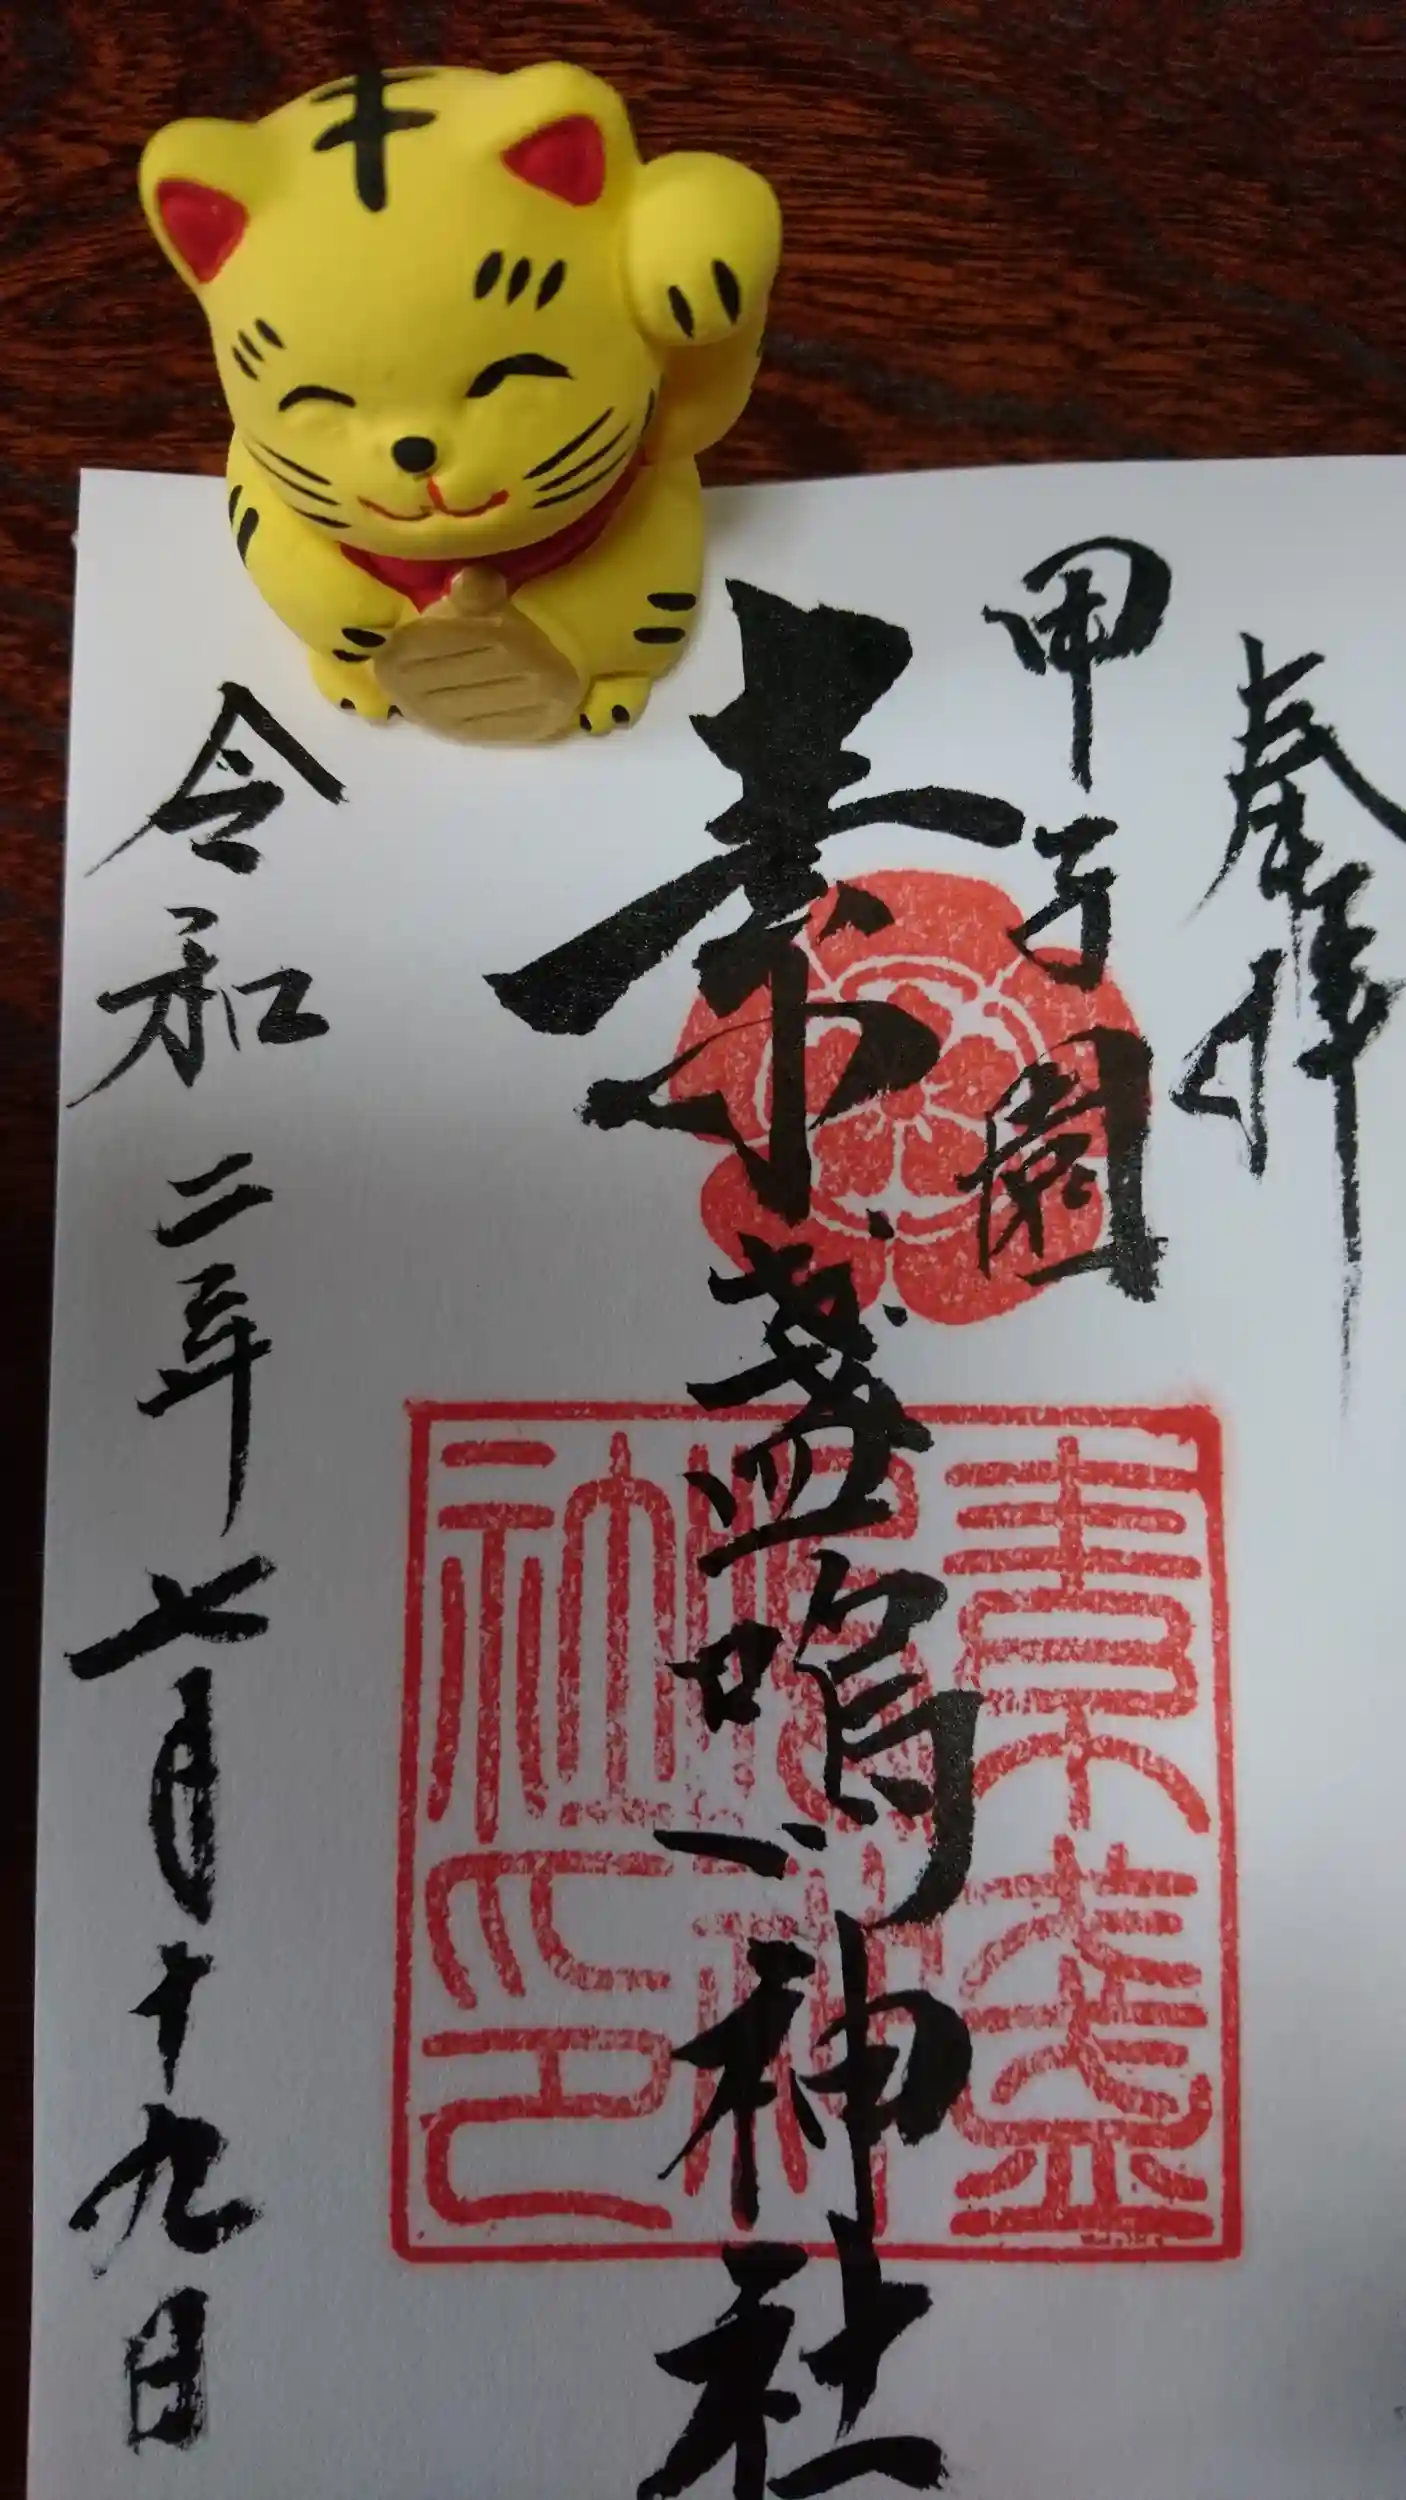 奉拝
甲子園
素盞嗚神社
素盞
嗚神
社之印
令和二年七月十九日